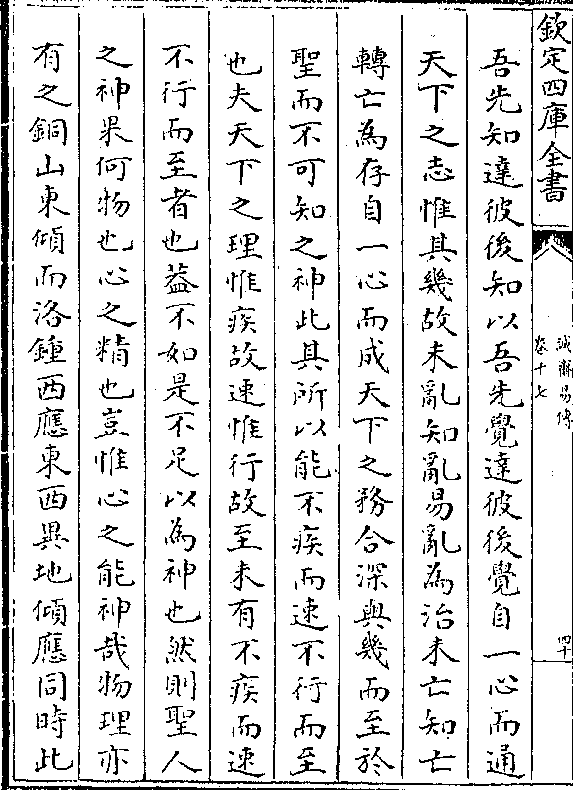 欽定四庫全書
誠齋易傳
卷十七
四十
吾先知達彼後知以吾先覺達彼後覺自一心而通
天下之志惟其幾故未亂知亂易亂為治未亡知亡
轉亡為存自一心而成天下之務合深與幾而至於
聖而不可知之神此其所以能不疾而速不行而至
也夫天下之理惟疾故速惟行故至未有不疾而速
不行而至者也蓋不如是不足以為神也然則聖人
之神果何物也心之精也豈惟心之能神哉物理亦
有之銅山東傾而洛鍾西應東西異地傾應同時此